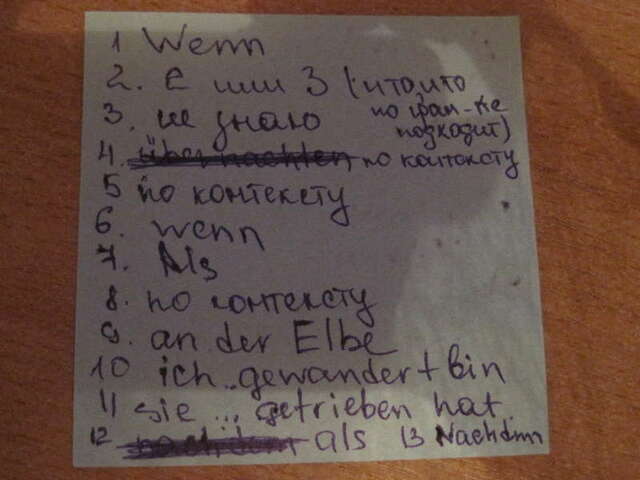 1 Wenn
2. С или 3 (что, что
по грам-ке
3. не знаю
подходит)
4. übernachten по контексту
5 по контексту
6. wenn
7. Als
8. по контексту
9. an der Elbe
10 ich ..gewandert bin
11 sie ... getrieben hat
12 nachdem als 13 Nachdem